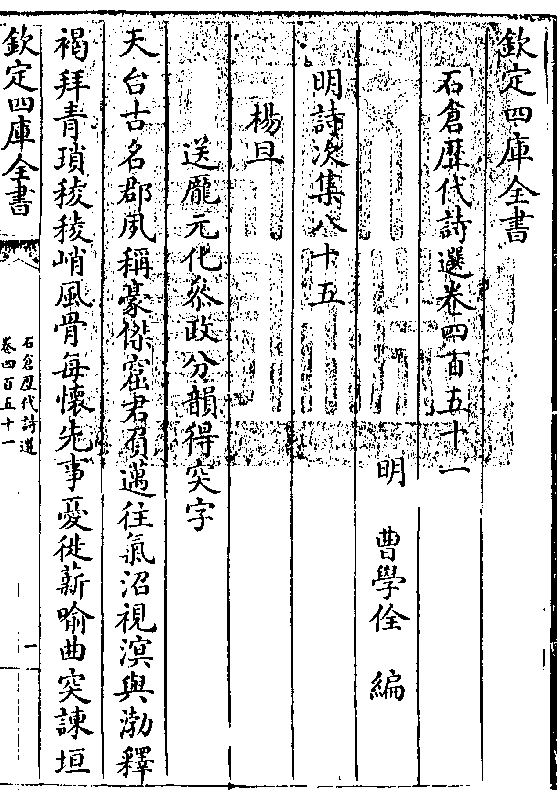 欽定四庫全書
石倉歴代詩選卷四百五十一
明 曹學佺 編
明詩次集八十五
楊旦
送龎元化叅政分韻得突字
天台古名郡夙稱豪傑窟君負邁往氣沼視溟與渤釋
褐拜青瑣稜稜峭風骨每懐先事憂徙薪喻曲突諫垣
欽定四庫全書
石倉歴代詩選
卷四百五十一
一